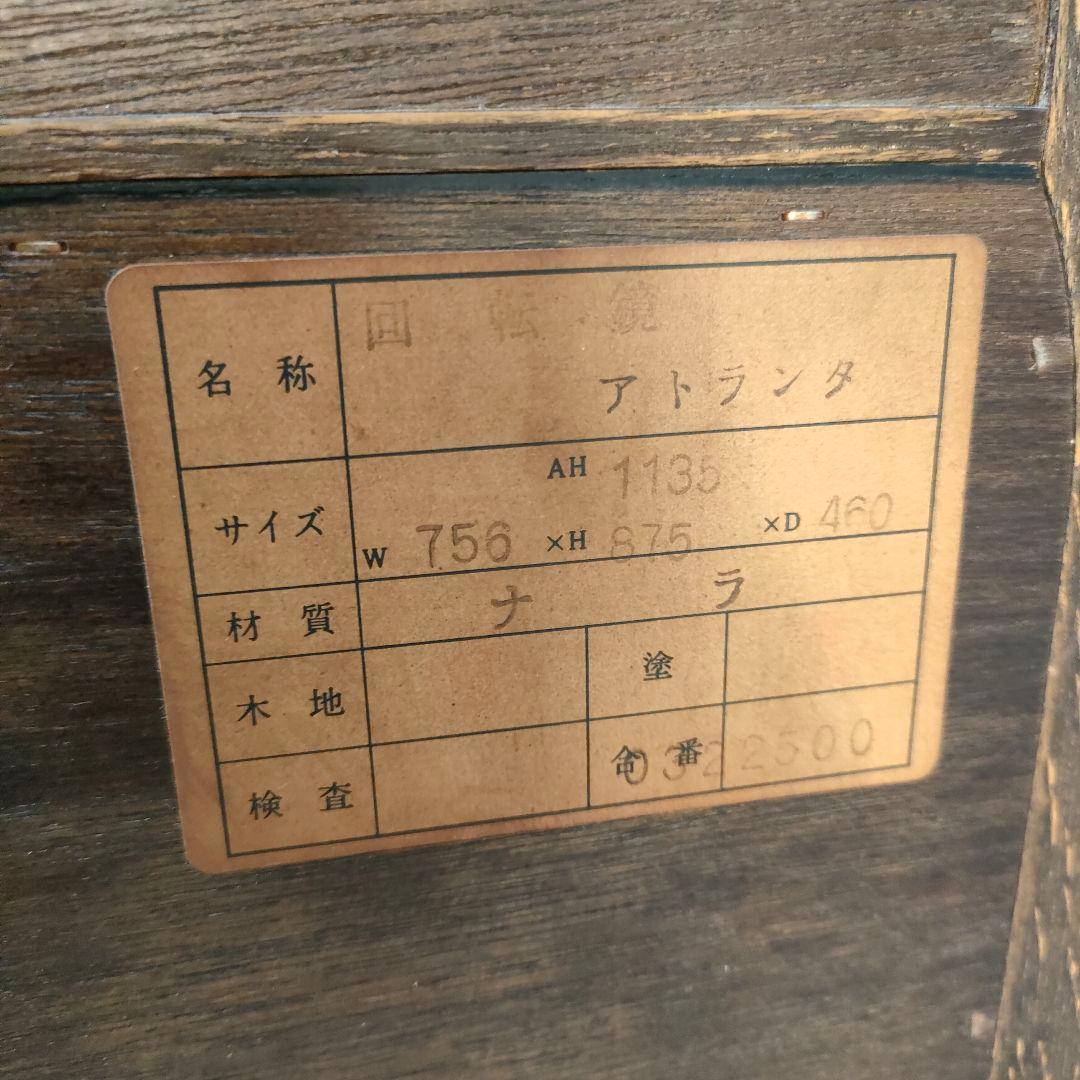 名称 回転鏡
アトランタ
AH 1135
サイズ W 756 ×H 875 ×D 460
材質 ナラ
木地 塗
検査 命番 0322500